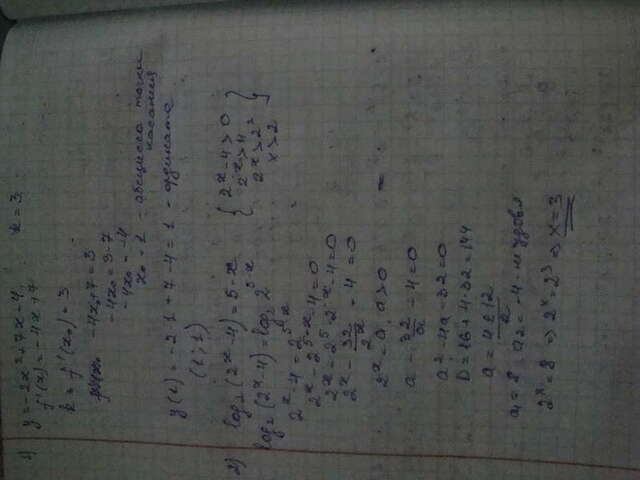 1) y = -2x² + 7x - 4, k = 3
f'(x) = -4x + 7
k = f'(x₀) = 3
-4x₀ + 7 = 3
-4x₀ = 3 - 7
-4x₀ = -4
x₀ = 1 - абсцисса точки касания
y(1) = -2·1 + 7 - 4 = 1 - ордината
(1; 1)
2) log₂(2ˣ - 4) = 5 - x
{ 2ˣ - 4 > 0
2ˣ > 4
2ˣ > 2²
x > 2 }
log₂(2ˣ - 4) = log₂ 2⁵⁻ˣ
2ˣ - 4 = 2⁵⁻ˣ
2ˣ - 2⁵⁻ˣ - 4 = 0
2ˣ - 2⁵·2⁻ˣ - 4 = 0
2ˣ - 32/2ˣ - 4 = 0
2ˣ = a, a > 0
a - 32/a - 4 = 0
a² - 4a - 32 = 0
D = 16 + 4·32 = 144
a = (4 ± 12)/2
a₁ = 8 a₂ = -4 - не удовл
2ˣ = 8 ⇒ 2ˣ = 2³ ⇒ x = 3